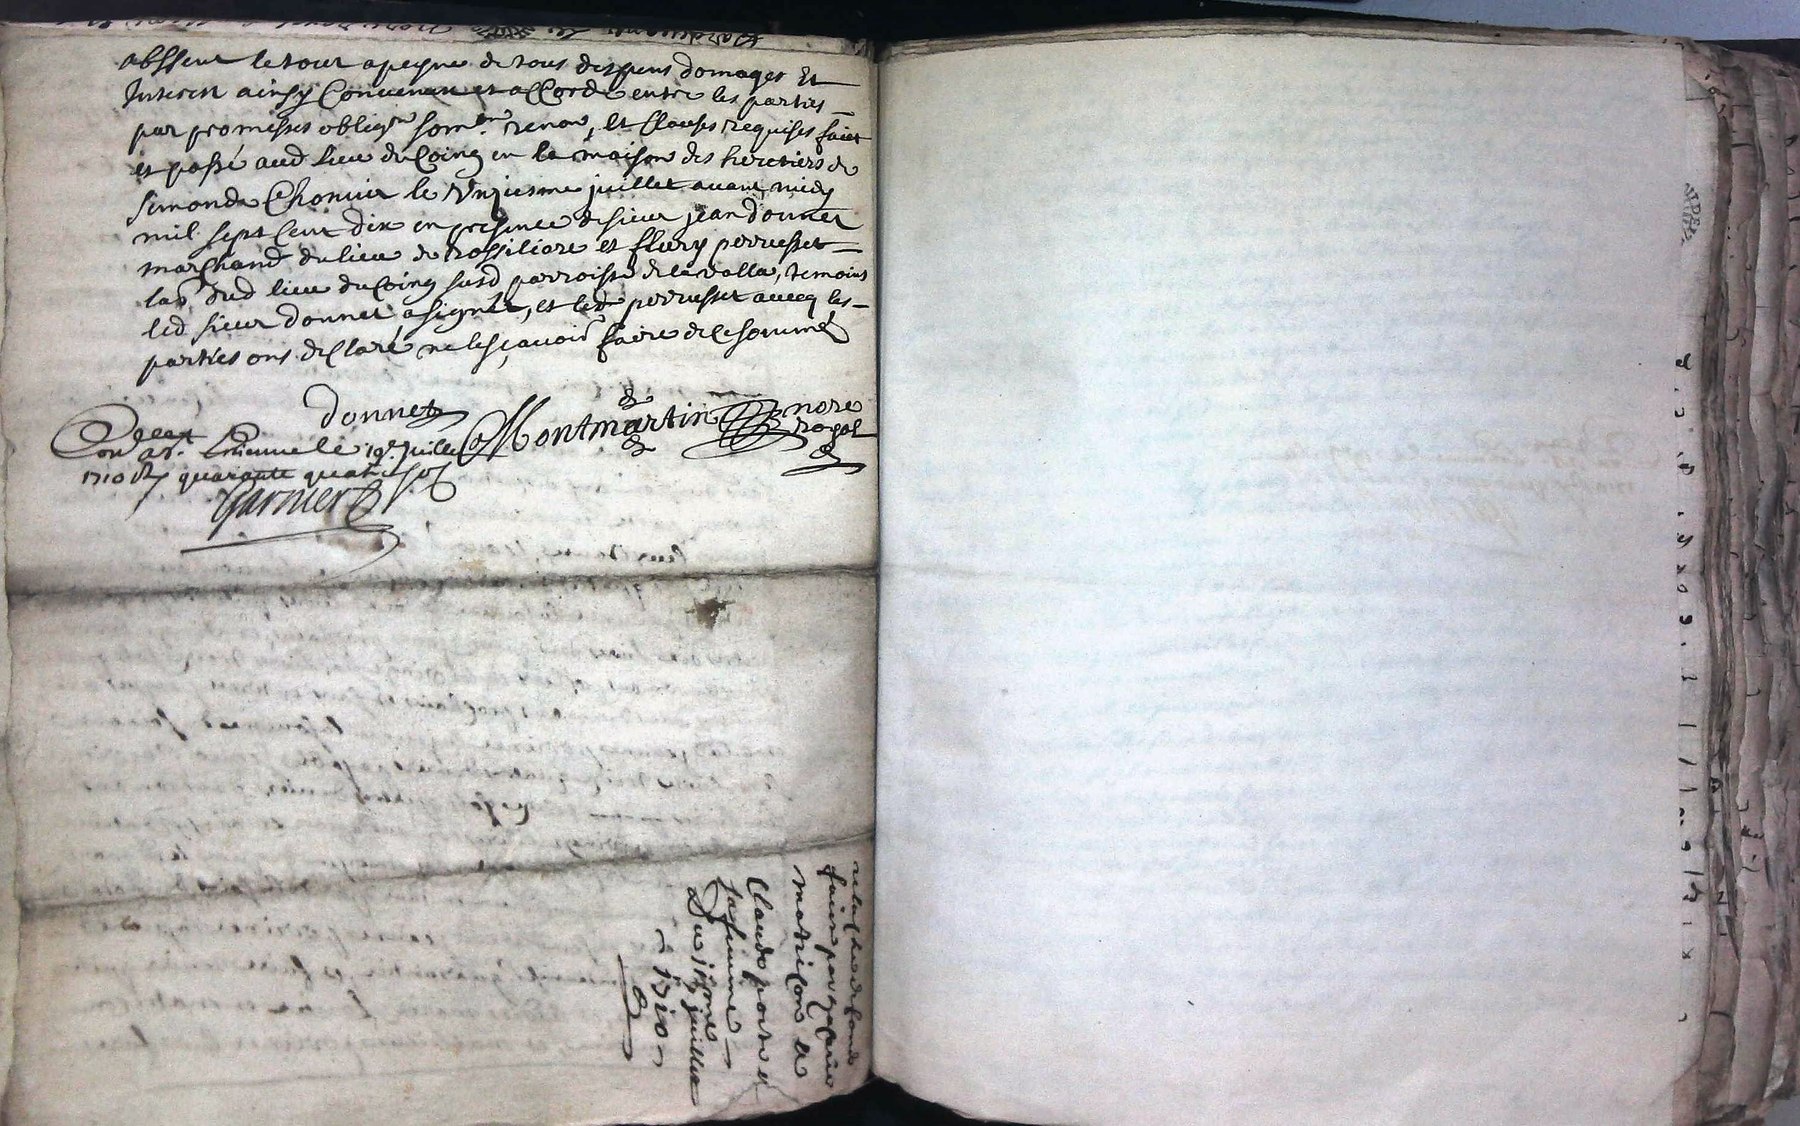 abssent le tout a peyne de tous despens domages Et
Interest ainsy Convenu et accorde entre les parties
par promesses obligon som.on renon, et Clauses requises faict
et passé aud lieu du Coing en la maison des heretiers de
simonde Chomier le Unziesme juillet avant midy
mil sept cent dix en presence de sieur jean donnet
marchand du lieu de rossiliore et fleury perrusset
labr dud lieu du Coing susd parroisse de lavalla, temoins
led sieur donnet a signé, et led perrusset avecq les
parties ont declaré ne le sçavoir faire de ce sommé
donnet
Montmartin nore
royal
Con a St. Etienne le 19e Juillet
1710 quarante quatre sols
Garnier
relasche de fond
faict par
matricon a
Claude porte et
sa femme
Du 11me juillet
1710